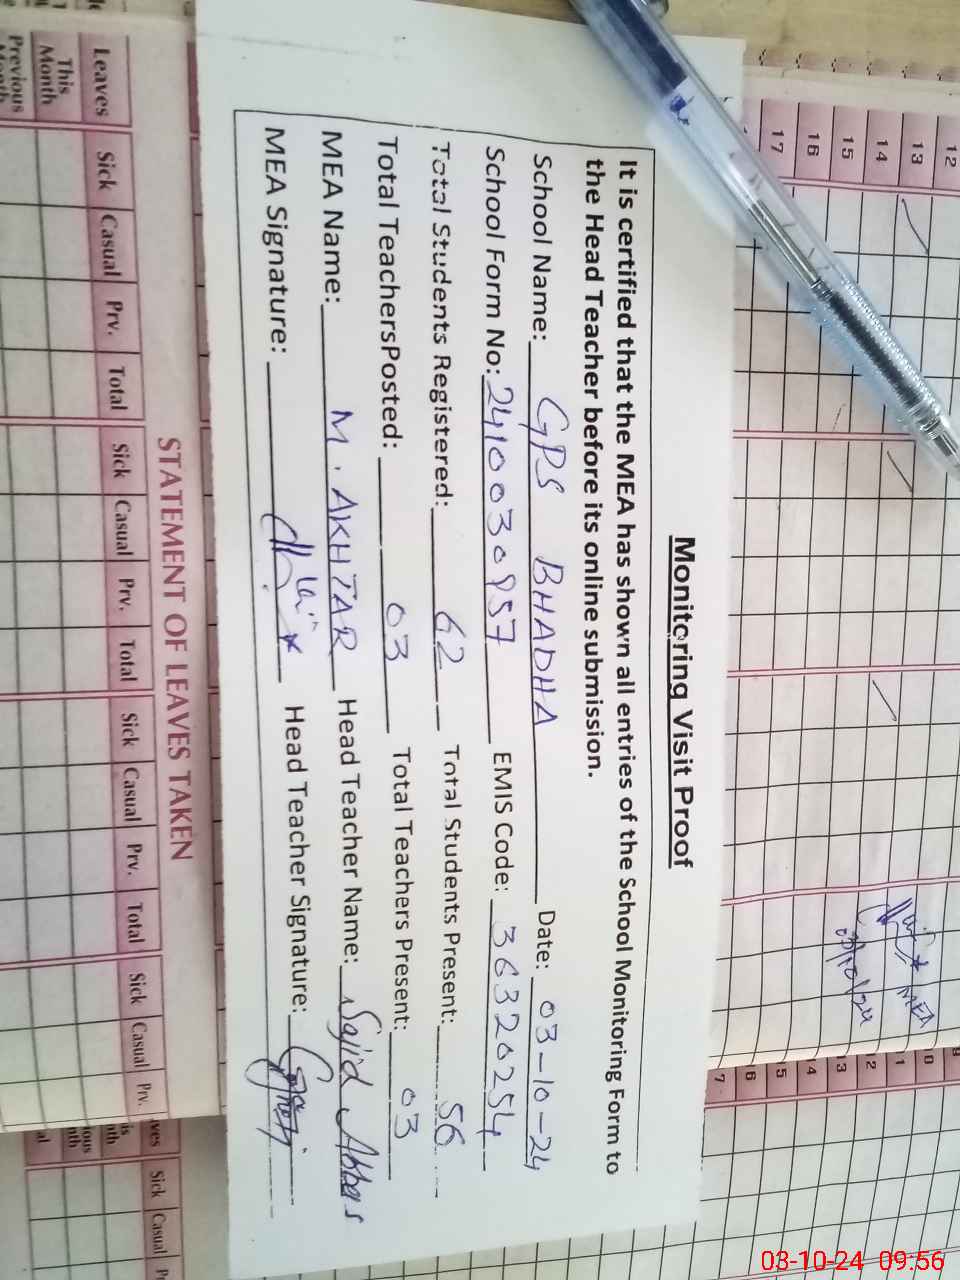 Monitoring Visit Proof
It is certified that the MEA has shown all entries of the School Monitoring Form to
the Head Teacher before its online submission.
School Name: GPS BHADHA Date: 03-10-24
School Form No: 2410030957 EMIS Code: 36320254
Total Students Registered: 62 Total Students Present: 56
Total TeachersPosted: 03 Total Teachers Present: 03
MEA Name: M. AKHTAR Head Teacher Name: Sajid Abbas
MEA Signature: Head Teacher Signature:
STATEMENT OF LEAVES TAKEN
Leaves Sick Casual Prv. Total Sick Casual Prv. Total Sick Casual Prv. Total Sick Casual Prv.
This Month
Previous Month
12
13
14
15
16
17
MEA
03/10/24
Sick Casual
03-10-24 09:56